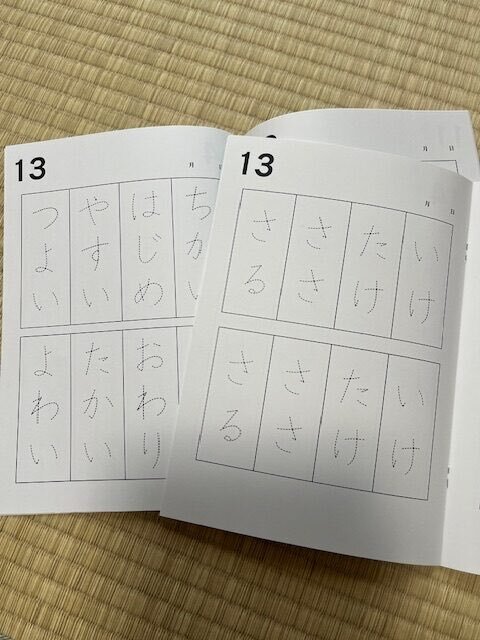 13
月 日
ちかい
はじめ
やすい
つよい
おわり
たかい
よわい
13
月 日
いけ
たけ
ささ
さる
いけ
たけ
ささ
さる